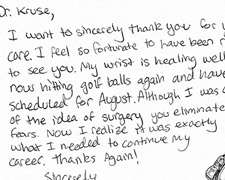 Dr. Kruse,
I want to sincerely thank you for
care. I feel so fortunate to have been
to see you. My wrist is healing well
now hitting golf balls again and have
scheduled for August. Although I was
of the idea of surgery you eliminate
fears. Now I realize it was exactly
what I needed to continue my
career. Thanks Again!
Sincerely